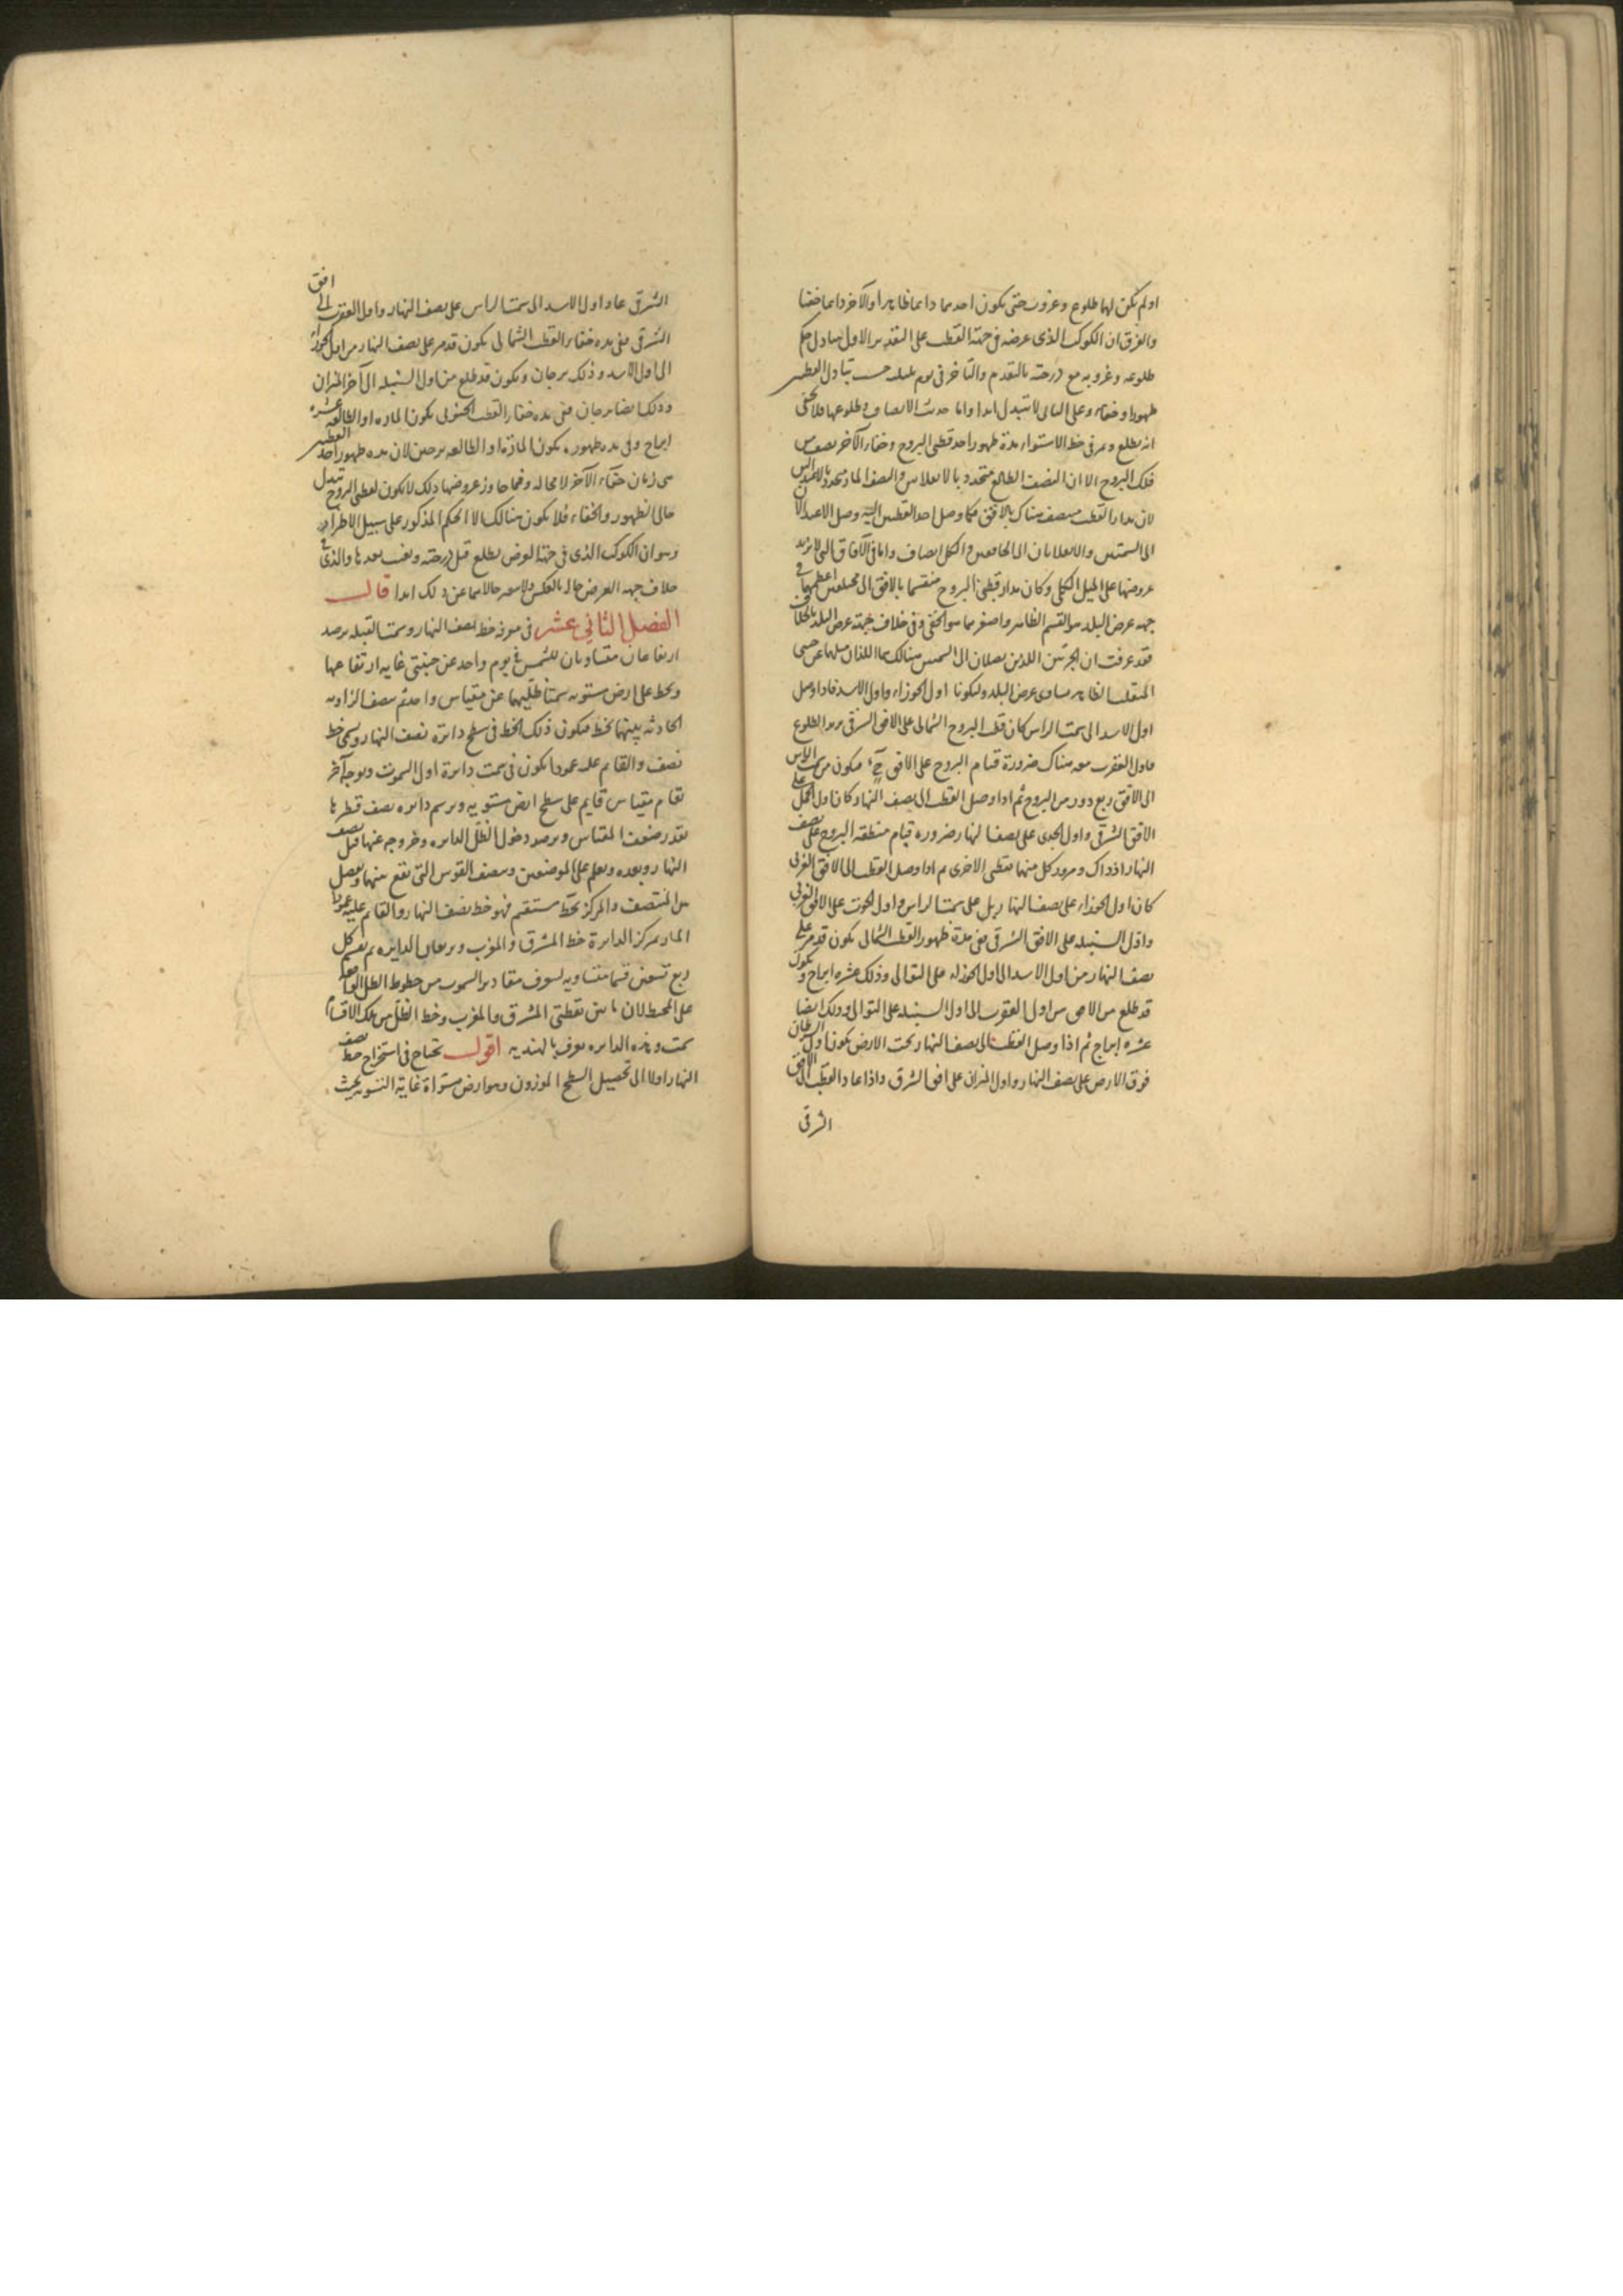 او لم يكن لها طلوع وغروب حتى يكون احدهما دائما ظاهرا والآخر دائما خفيا
والفرق ان الكوكب الذى عرضه فى جهة القطب على التقدير الاول يتبادل حكم
طلوعه وغروبه مع درجته بالتقدم والتاخر فى يوم بليلته حسب تبادل القطبين
ظهورا وخفاء وعلى الثانى لا يتبدل ابدا واما حديث الانصاف وطلوعها فلا يخفى
انه يطلع ويمر فى خط الاستواء مدة ظهور احد قطبى البروج وخفاء الآخر نصف من
فلك البروج الا ان النصف الطالع يتحدد بالانقلابين والنصف المار يتحدد بالاعتدالين
لان مدار القطب منتصف هناك بالافق فكما وصل احد القطبين اليه وصل الاعتدالان
الى السمتين والانقلابان الى الخافقين والكل انصاف واما فى الآفاق التى لا يزيد
عروضها على الميل الكلى وكان مدار قطبى البروج منقسما بالافق الى مختلفين اعظمهما فى
جهة عرض البلد هو القسم الظاهر واصغرهما هو الخفى وفى خلاف جهة عرض البلد بالخلاف
فقد عرفت ان الجزئين اللذين يصلان الى السمتين هنالك هما اللذان ميلهما عن جنبتى
المنقلب الظاهر يساوى عرض البلد وليكونا اول الجوزاء واول الاسد فاذا وصل
اول الاسد الى سمت الراس كان قطب البروج الشمالى على الافق الشرقى يريد الطلوع
واول العقرب معه هناك ضرورة قيام البروج على الافق ح فيكون من سمت الراس
الى الافق ربع دور من البروج ثم اذا وصل القطب الى نصف النهار كان اول الحمل على
الافق الشرقى واول الجدى على نصف النهار ضرورة قيام منطقة البروج على نصف
النهار اذ ذاك ومرور كل منهما بقطبى الاخرى ثم اذا وصل القطب الى الافق الغربى
كان اول الجوزاء على نصف النهار بل على سمت الراس واول الحوت على الافق الغربى
واول السنبلة على الافق الشرقى ففى مدة ظهور القطب الشمالى يكون قد مر على
نصف النهار من اول الاسد الى اول الجوزاء على التوالى وذلك عشرة ابراج ويكون
قد طلع من الافق من اول العقرب الى اول السنبلة على التوالى وذلك ايضا
عشرة ابراج ثم اذا وصل القطب الى نصف النهار تحت الارض يكون اول السرطان
فوق الارض على نصف النهار واول الميزان على افق الشرق واذا عاد القطب الى الافق
الشرقى
الشرقى عاد اول الاسد الى سمت الراس على نصف النهار واول العقرب الى افق
الشرقى ففى مدة خفاء القطب الشمالى يكون قد مر على نصف النهار من اول الجوزاء
الى اول الاسد وذلك برجان ويكون قد طلع من اول السنبلة الى آخر الميزان
وذلك ايضا برجان ففى مدة خفاء القطب الجنوبى يكون المارة او الطالعة عشرة
ابراج وفى مدة ظهوره يكون المارة او الطالعة برجين لان مدة ظهور احد القطبين
هى زمان خفاء الآخر لا محالة وفيما جاوز عروضها ذلك لا يكون لقطبى البروج تبدل
حالى الظهور والخفاء فلا يكون هنالك الا الحكم المذكور على سبيل الاطراد
وهو ان الكوكب الذى فى جهة العرض يطلع قبل درجته ويغيب بعدها والذى فى
خلاف جهة العرض حاله بالعكس ولا يتغير حالاهما عن ذلك ابدا قال
الفصل الثانى عشر فى معرفة خط نصف النهار وسمت القبلة يرصد
ارتفاعان متساويان للشمس فى يوم واحد عن جنبتى غاية ارتفاعها
ويخط على ارض مستوية سمتا ظليهما عن مقياس واحد ثم ينصف الزاوية
الحادثة بينهما بخط فيكون ذلك الخط فى سطح دائرة نصف النهار ويسمى خط
نصف والقائم عليه عمودا يكون فى سمت دائرة اول السموت وبوجه آخر
يقام مقياس قايم على سطح ارض مستوية ويرسم دائرة نصف قطرها
بقدر ضعف المقياس ويرصد دخول الظل الدائرة وخروجه عنها قبل نصف
النهار وبعده ويعلم على الموضعين وينصف القوس التى تقع بينهما ويصل
بين المنتصف والمركز بخط مستقيم فهو خط نصف النهار والقائم عليه عمودا
المار بمركز الدائرة خط المشرق والمغرب ويربعان الدايرة ثم يقسم كل
ربع تسعين قسما متساوية ليعرف مقادير السموت من خطوط الظل الواقعة
على المحيط لان ما بين نقطتى المشرق والمغرب وخط الظل من تلك الاقسام
سمت وهذه الدايرة تعرف بالهندية اقول نحتاج فى استخراج خط نصف
النهار اولا الى تحصيل السطح الموزون وهو ارض مستواة غاية التسوية بحيث